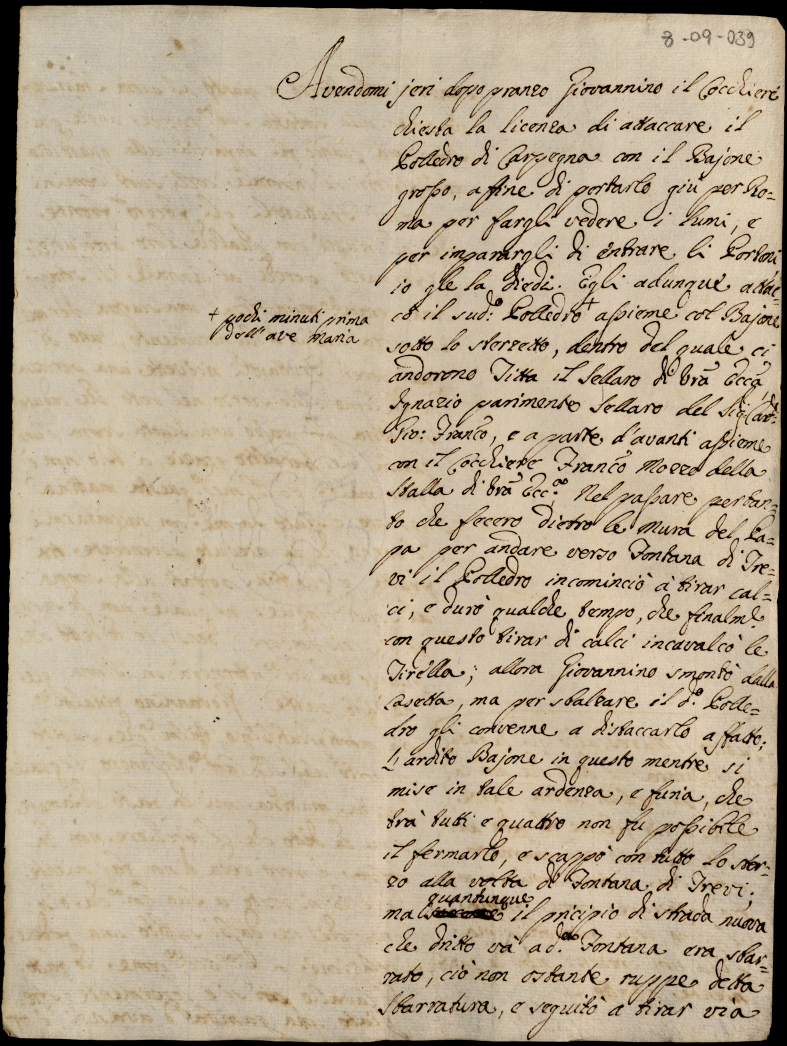 8-09-039
Avendomi jeri dopo pranzo Giovannino il Cocchiere
chiesta la licenza di attaccare il
Polledro di Carpegna con il Bajone
grosso, affine di portarlo giù per Ro=
ma per fargli vedere i lumi, e
per imparargli di entrare li Portoni
io gle la diedi. Egli adunque attac=
cò il sud.º Polledro + assieme col Bajone
+ pochi minuti prima
dell' ave maria
sotto lo sterzetto, dentro del quale ci
andorono Titta il Sellaro di Vrã Eccã
Ignazio parimente Sellaro del Sig.
Franco, e a parte d'avanti assieme
con il Cocchiere Franco Mozzo della
stalla di Vrã Ecc.ª Nel passare pertan=
to che fecero dietro le Mura del Pa=
pa per andare verso Fontana di Tre=
vi il Polledro incominciò à tirar cal=
ci, e durò qualche tempo, che finalm.e
con questo tirar di calci incavalcò le
Tirella; allora Giovannino smontò dalla
Casetta, ma per sbalzare il d.º Polle=
dro gli convenne a distaccarlo affatto;
L'ardito Bajone in questo mentre si
mise in tale ardenza, e furia, che
trà tutti e quattro non fu possibile
il fermarlo, e scappò con tutto lo ster=
zo alla volta di Fontana di Trevi;
quantunque
ma il pricipio di strada nuova
che dritto và a d.ª Fontana era sbar=
rato, ciò non ostante ruppe detta
sbarratura, e seguitò a tirar via